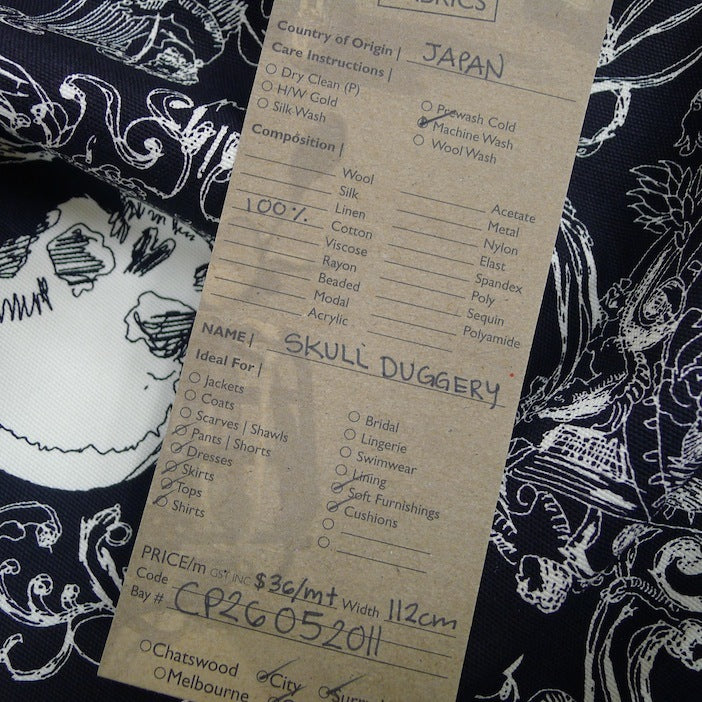 FABRICS
Country of Origin | JAPAN
Care Instructions |
Dry Clean (P)
H/W Gold
Silk Wash
Prewash Cold
Machine Wash
Wool Wash
Composition |
Wool
Silk
Linen
100% Cotton
Viscose
Rayon
Beaded
Modal
Acrylic
Acetate
Metal
Nylon
Elast
Spandex
Poly
Sequin
Polyamide
NAME | SKULL DUGGERY
Ideal For |
Jackets
Coats
Scarves | Shawls
Pants | Shorts
Dresses
Skirts
Tops
Shirts
Bridal
Lingerie
Swimwear
Lining
Soft Furnishings
Cushions
PRICE/m GST INC $36/mt Width 112cm
Code
Bay # CP26052011
Chatswood City
Melbourne